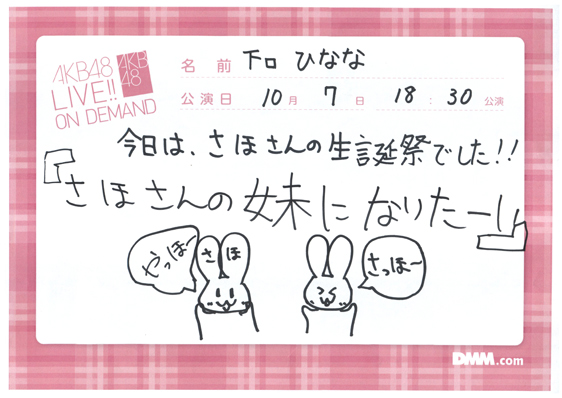 AKB48
LIVE!!
ON DEMAND
AKB
48
名前 下口 ひなな
公演日 10月 7日 18:30 公演
今日は、さほさんの生誕祭でした!!
『さほさんの妹になりたーい』
やっほー
さほ
さっほー
DMM.com